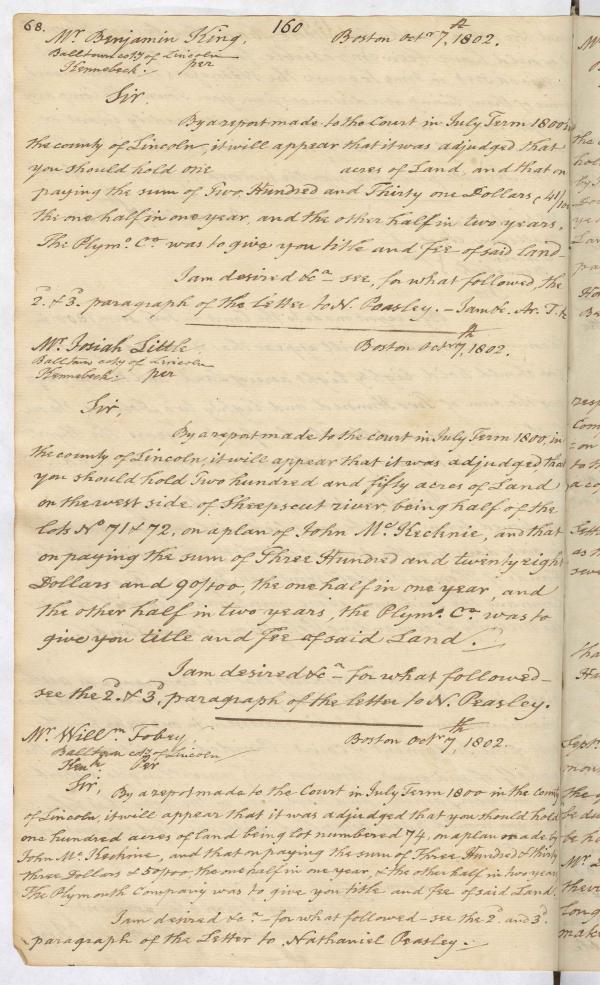 68. 160
Mr. Benjamin King, Boston Octr. 7th, 1802.
Balltown coty of Lincoln
Kennebeck. per
Sir.
By a report made to the Court in July Term 1800 in
the county of Lincoln, it will appear that it was adjudged that
you should hold one acres of Land, and that on
paying the sum of Two Hundred and Thirty one Dollars, 41/100
the one half in one year, and the other half in two years.
The Plymo. Co. was to give you title and fee of said land-
I am desired &ca - see, for what followed, the
2d. & 3d. paragraph of the letter to N. Peasley. - I am &c. Ar. T.
Mr. Josiah Little. Boston Octr. 7th, 1802.
Balltown coty of Lincoln
Kennebeck. per
Sir,
By a report made to the court in July Term 1800, in
the county of Lincoln, it will appear that it was adjudged that
you should hold Two hundred and fifty acres of Land
on the west side of Sheepscut river, being half of the
lots No 71 & 72, on a plan of John McKechnie, and that
on paying the sum of Three Hundred and twenty eight
Dollars and 90/100, the one half in one year, and
the other half in two years, the Plymo. Co. was to
give you title and Fee of said Land.
I am desired &ca - for what followed -
see the 2d. & 3d. paragraph of the letter to N. Peasley.
Mr. Willm Tobey, Boston Octr 7th, 1802.
Balltown coty of Lincoln
Kenk. Per
Sir,
By a report made to the Court in July Term 1800 in the County
of Lincoln, it will appear that it was adjudged that you should hold
one hundred acres of land being lot numbered 74, on a plan made by
John McKechnie, and that on paying the sum of Three Hundred & thirty
three Dollars & 50/100, the one half in one year, & the other half in two years,
The Plymouth Company was to give you title and fee of said Land.
I am desired &ca - for what followed - see the 2d. and 3d.
paragraph of the Letter to Nathaniel Peasley.